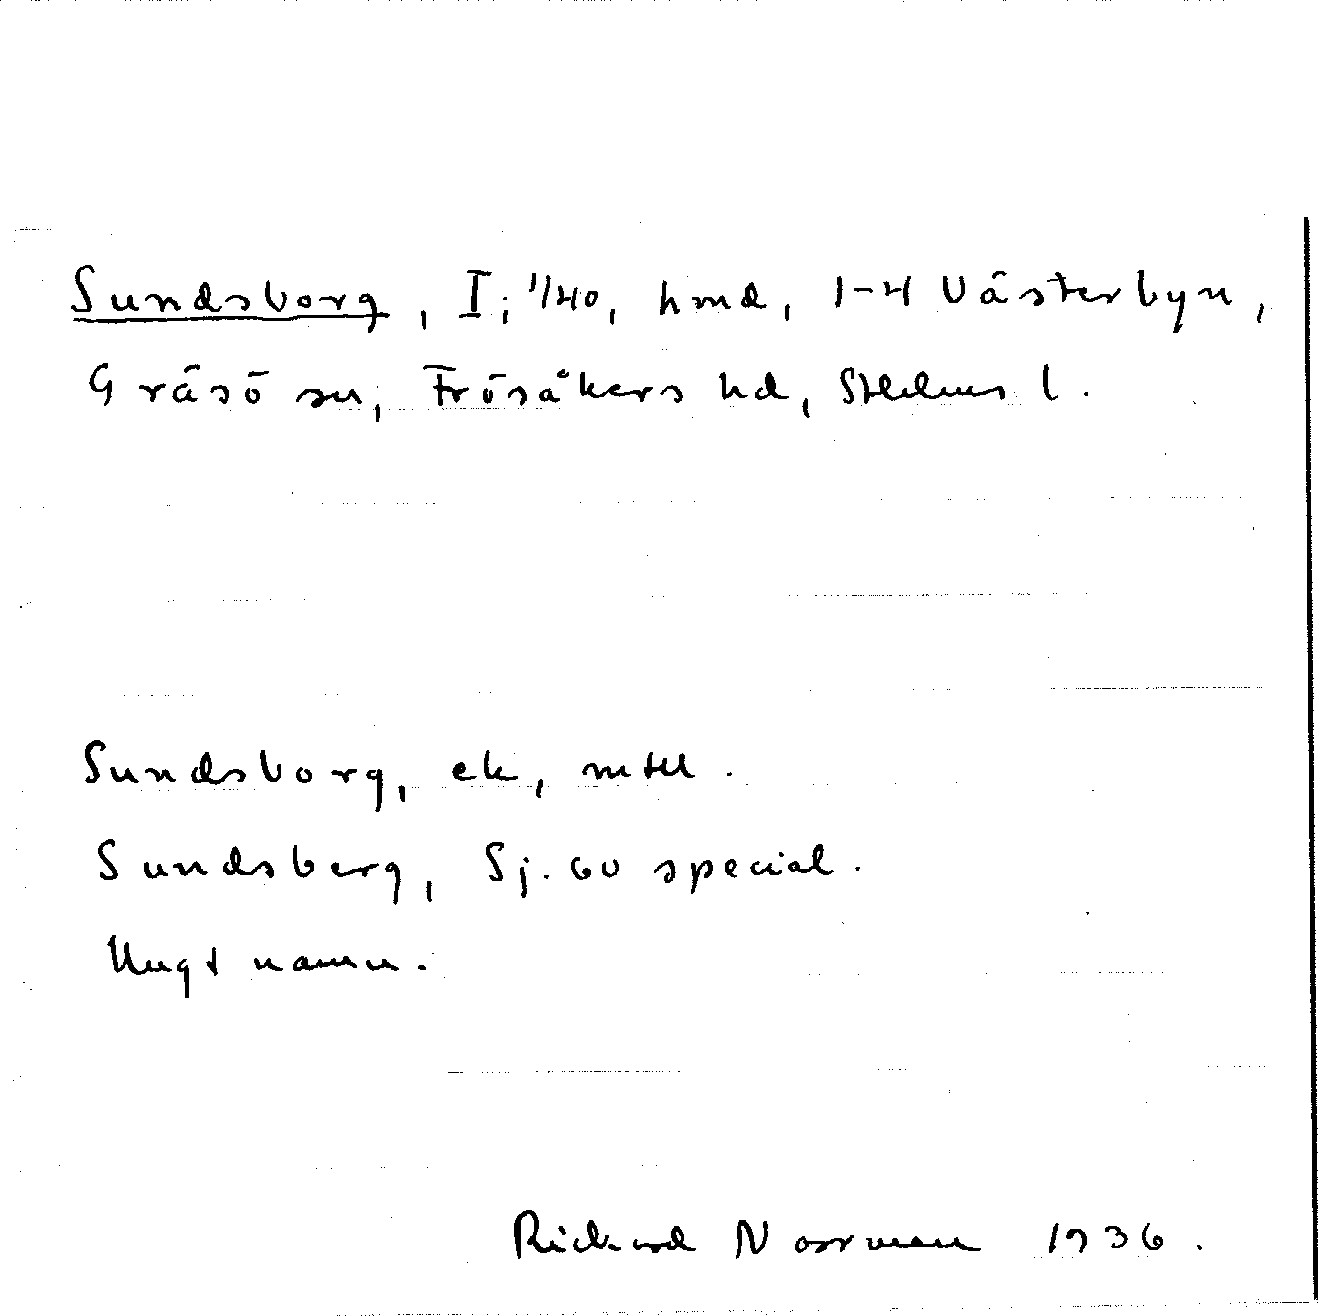 Sundsborg, I; 1/40, hmd, 1-4 Västerbyn,
Gräsö sn, Frösåkers hd, Sthlms l.
Sundsborg, ek, mtll.
Sundsberg, Sj. 60 special.
Ungt namn.
Rickard Norrman 1936.